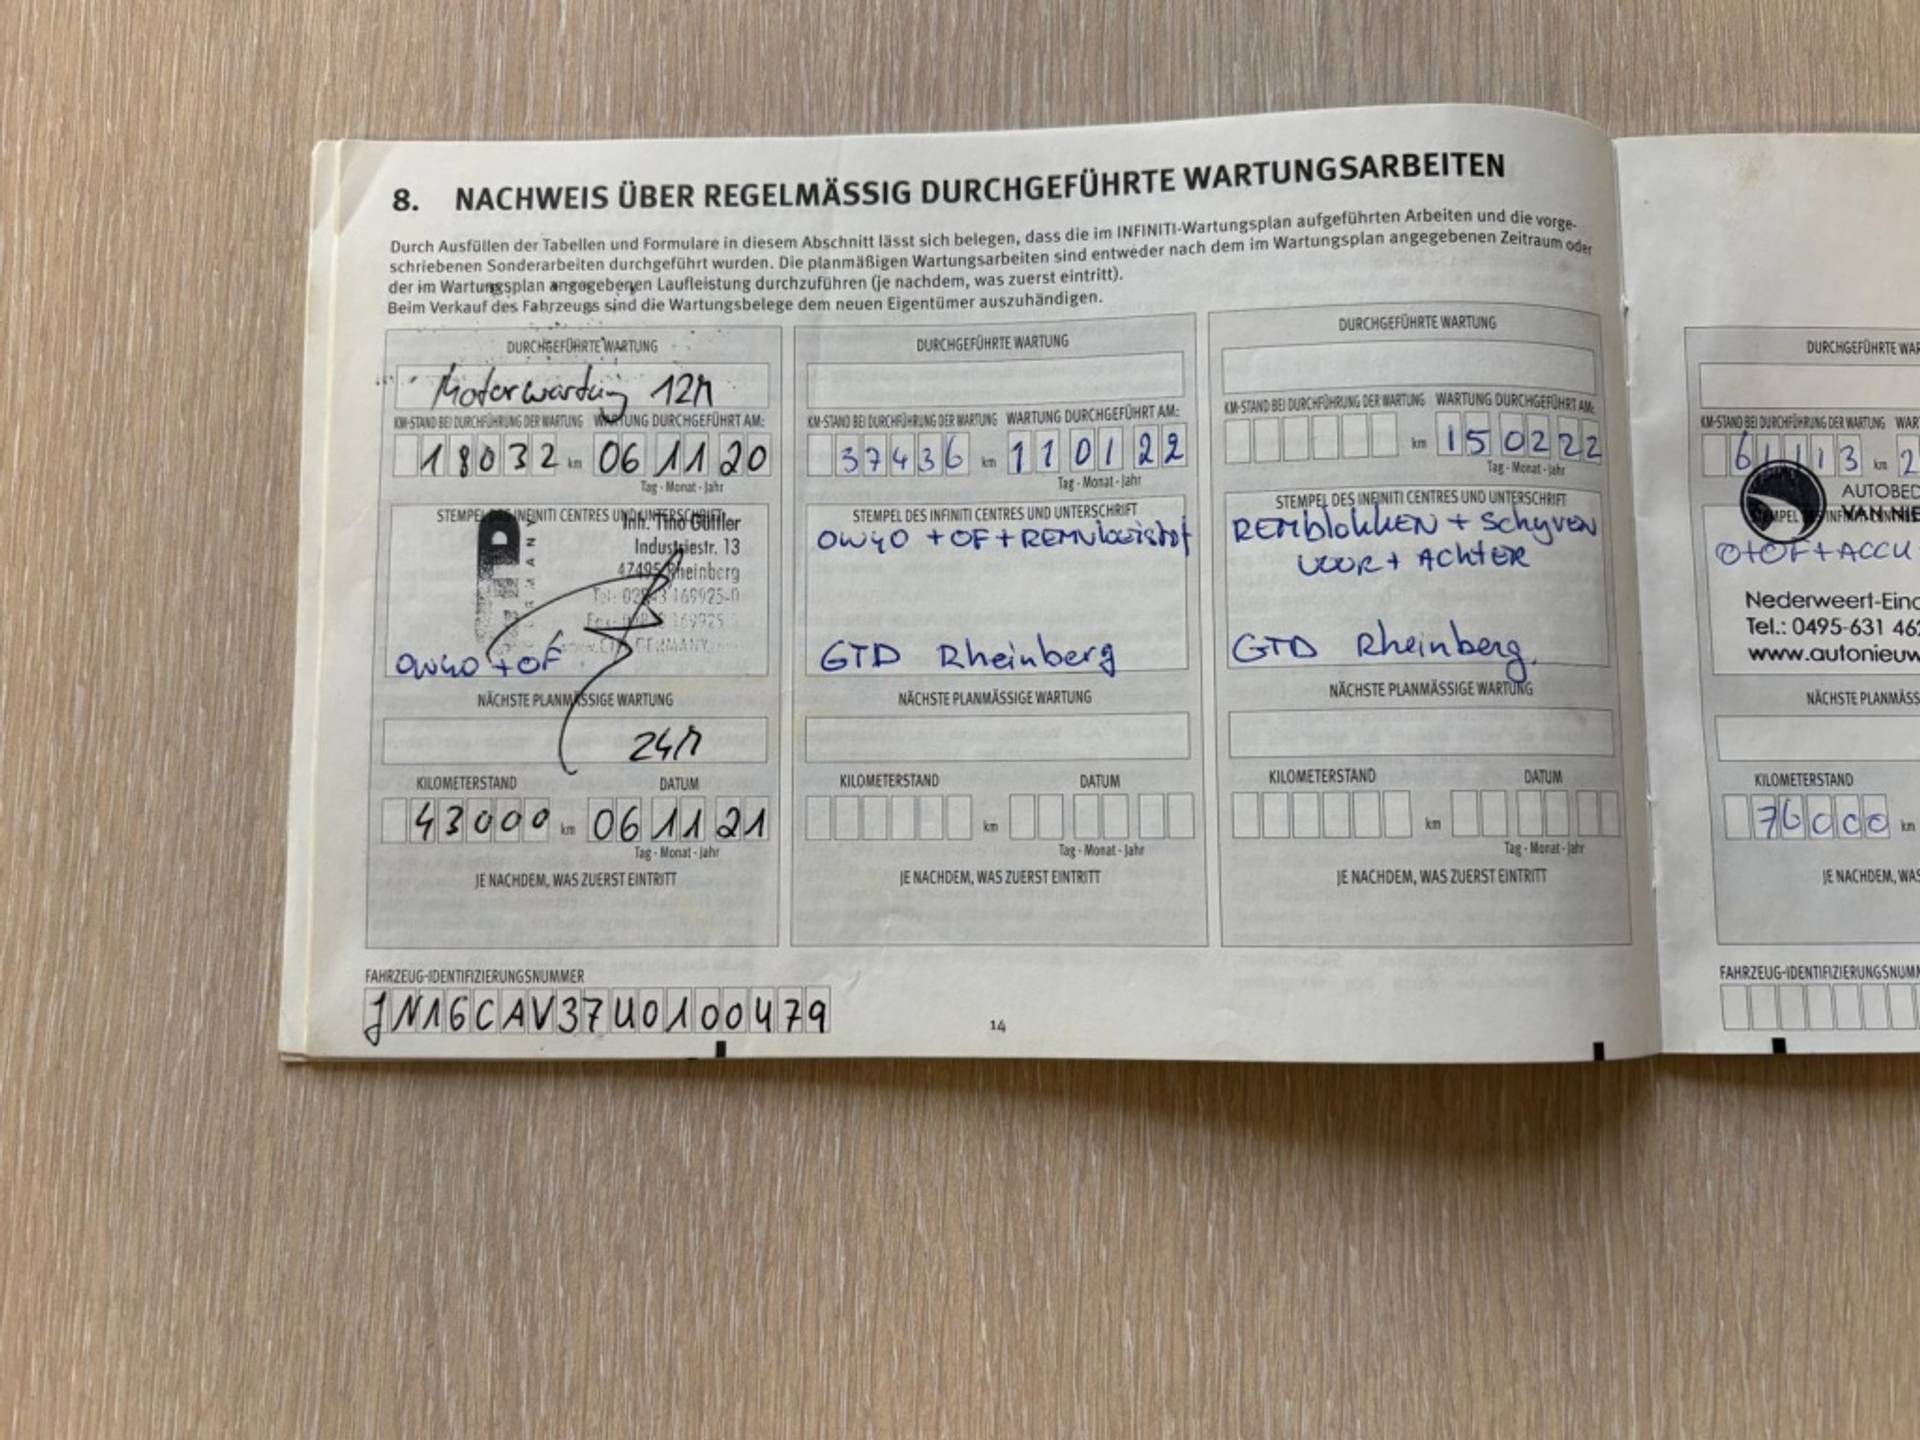 8. NACHWEIS ÜBER REGELMÄSSIG DURCHGEFÜHRTE WARTUNGSARBEITEN
Durch Ausfüllen der Tabellen und Formulare in diesem Abschnitt lässt sich belegen, dass die im INFINITI-Wartungsplan aufgeführten Arbeiten und die vorge-
schriebenen Sonderarbeiten durchgeführt wurden. Die planmäßigen Wartungsarbeiten sind entweder nach dem im Wartungsplan angegebenen Zeitraum oder
der im Wartungsplan angegebenen Laufleistung durchzuführen (je nachdem, was zuerst eintritt).
Beim Verkauf des Fahrzeugs sind die Wartungsbelege dem neuen Eigentümer auszuhändigen.
DURCHGEFÜHRTE WARTUNG
Motorwartung 12M
KM-STAND BEI DURCHFÜHRUNG DER WARTUNG WARTUNG DURCHGEFÜHRT AM:
18032 km 06 11 20
Tag - Monat - Jahr
STEMPEL DES INFINITI CENTRES UND UNTERSCHRIFT
Inh. Tino Güttler
Industriestr. 13
47495 Rheinberg
GERMANY
0W40 + OF
NÄCHSTE PLANMÄSSIGE WARTUNG
24M
KILOMETERSTAND DATUM
43000 km 06 11 21
Tag - Monat - Jahr
JE NACHDEM, WAS ZUERST EINTRITT
DURCHGEFÜHRTE WARTUNG
KM-STAND BEI DURCHFÜHRUNG DER WARTUNG WARTUNG DURCHGEFÜHRT AM:
37436 km 11 01 22
Tag - Monat - Jahr
STEMPEL DES INFINITI CENTRES UND UNTERSCHRIFT
0W40 + OF + REMVloeistof
GTD Rheinberg
NÄCHSTE PLANMÄSSIGE WARTUNG
KILOMETERSTAND DATUM
km
Tag - Monat - Jahr
JE NACHDEM, WAS ZUERST EINTRITT
DURCHGEFÜHRTE WARTUNG
KM-STAND BEI DURCHFÜHRUNG DER WARTUNG WARTUNG DURCHGEFÜHRT AM:
km 15 02 22
Tag - Monat - Jahr
STEMPEL DES INFINITI CENTRES UND UNTERSCHRIFT
REMblokken + Schyven
VOOR + ACHTER
GTD Rheinberg
NÄCHSTE PLANMÄSSIGE WARTUNG
KILOMETERSTAND DATUM
km
Tag - Monat - Jahr
JE NACHDEM, WAS ZUERST EINTRITT
FAHRZEUG-IDENTIFIZIERUNGSNUMMER
JN16CAV37U0100479
14
DURCHGEFÜHRTE WAR
KM-STAND BEI DURCHFÜHRUNG DER WARTUNG WAR
61113 km 2
AUTOBED
VAN NIE
O+OF+ACCU
Nederweert-Eind
Tel.: 0495-631 46
www.autonieuw
NÄCHSTE PLANMÄSS
KILOMETERSTAND
76000 km
JE NACHDEM, WAS
FAHRZEUG-IDENTIFIZIERUNGSNUMM